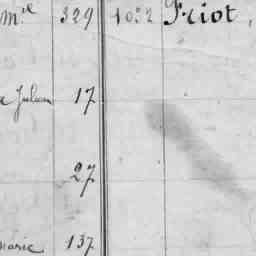 Mel 329 1032 Friot,
Julien 17
27
marie 137